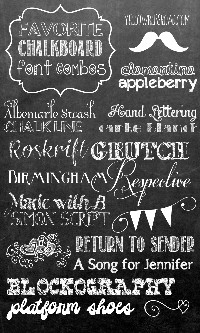 FAVORITE
CHALKBOARD
font combos
clementine
appleberry
Albemarle Swash
CHALKLINE
Hand Lettering
Roskrift
GRUTCH
BIRMINGHAM
Respective
Made with B
SIMON SCRIPT
RETURN TO SENDER
A Song for Jennifer
BLOCKOGRAPHY
platform shoes